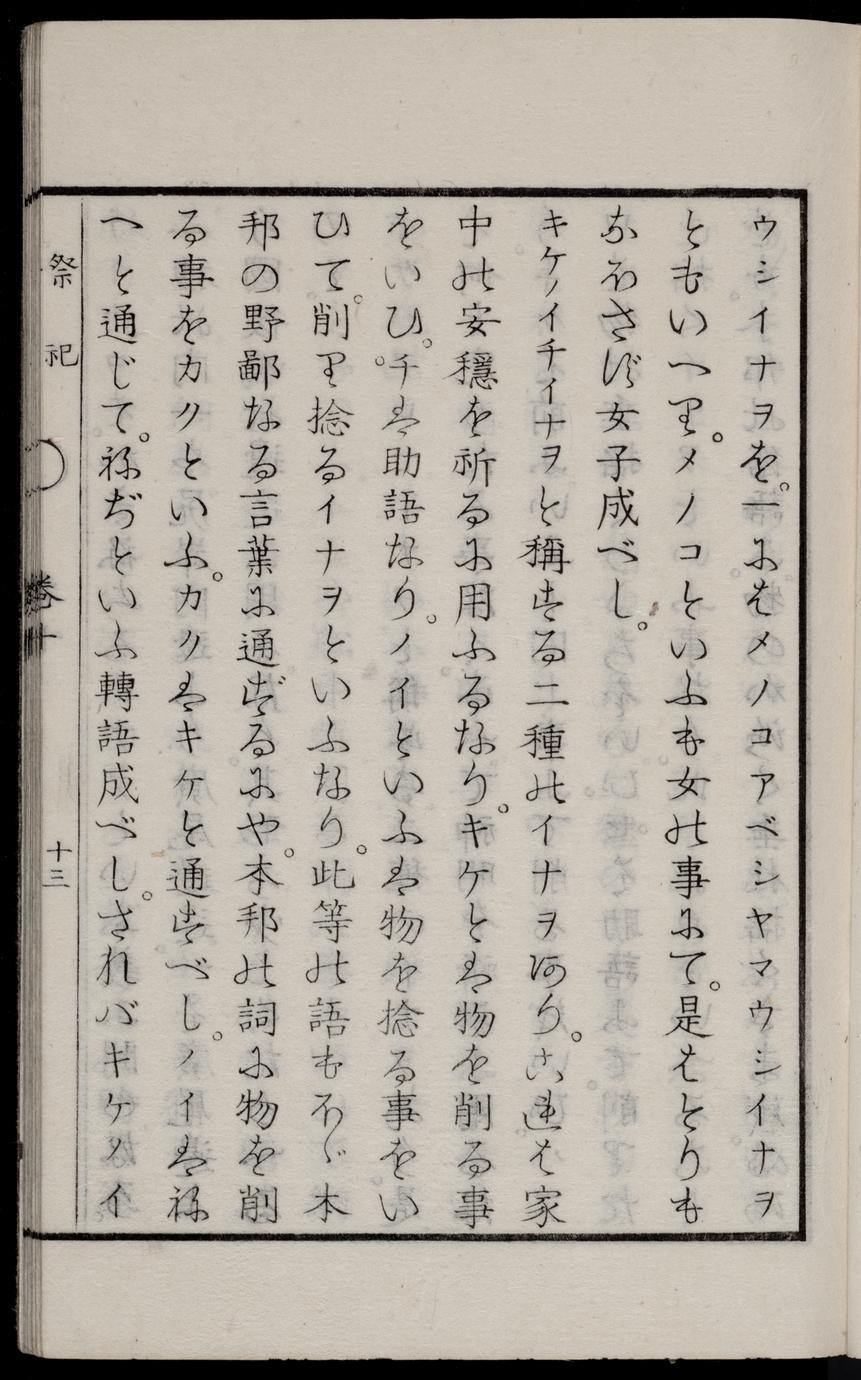 ウシイナヲを。一にはメノコアベシヤマウシイナヲ
ともいへり。メノコといふも女の事にて。是はとりも
なほさず女子成べし。
キケノイチイナヲと稱する二種のイナヲ有り。これは家
中の安穩を祈るに用ふるなり。キケとは物を削る事
をいひ。チは助語なり。ノイといふは物を捻る事をい
ひて。削り捻るイナヲといふなり。此等の語もほゞ本
邦の野鄙なる言葉に通ずるにや。本邦の詞に物を削
る事をカクといふ。カクはキケと通ずべし。ノイは祢
へと通じて。祢ぢといふ轉語成べし。さればキケノイ
祭祀
卷十
十三